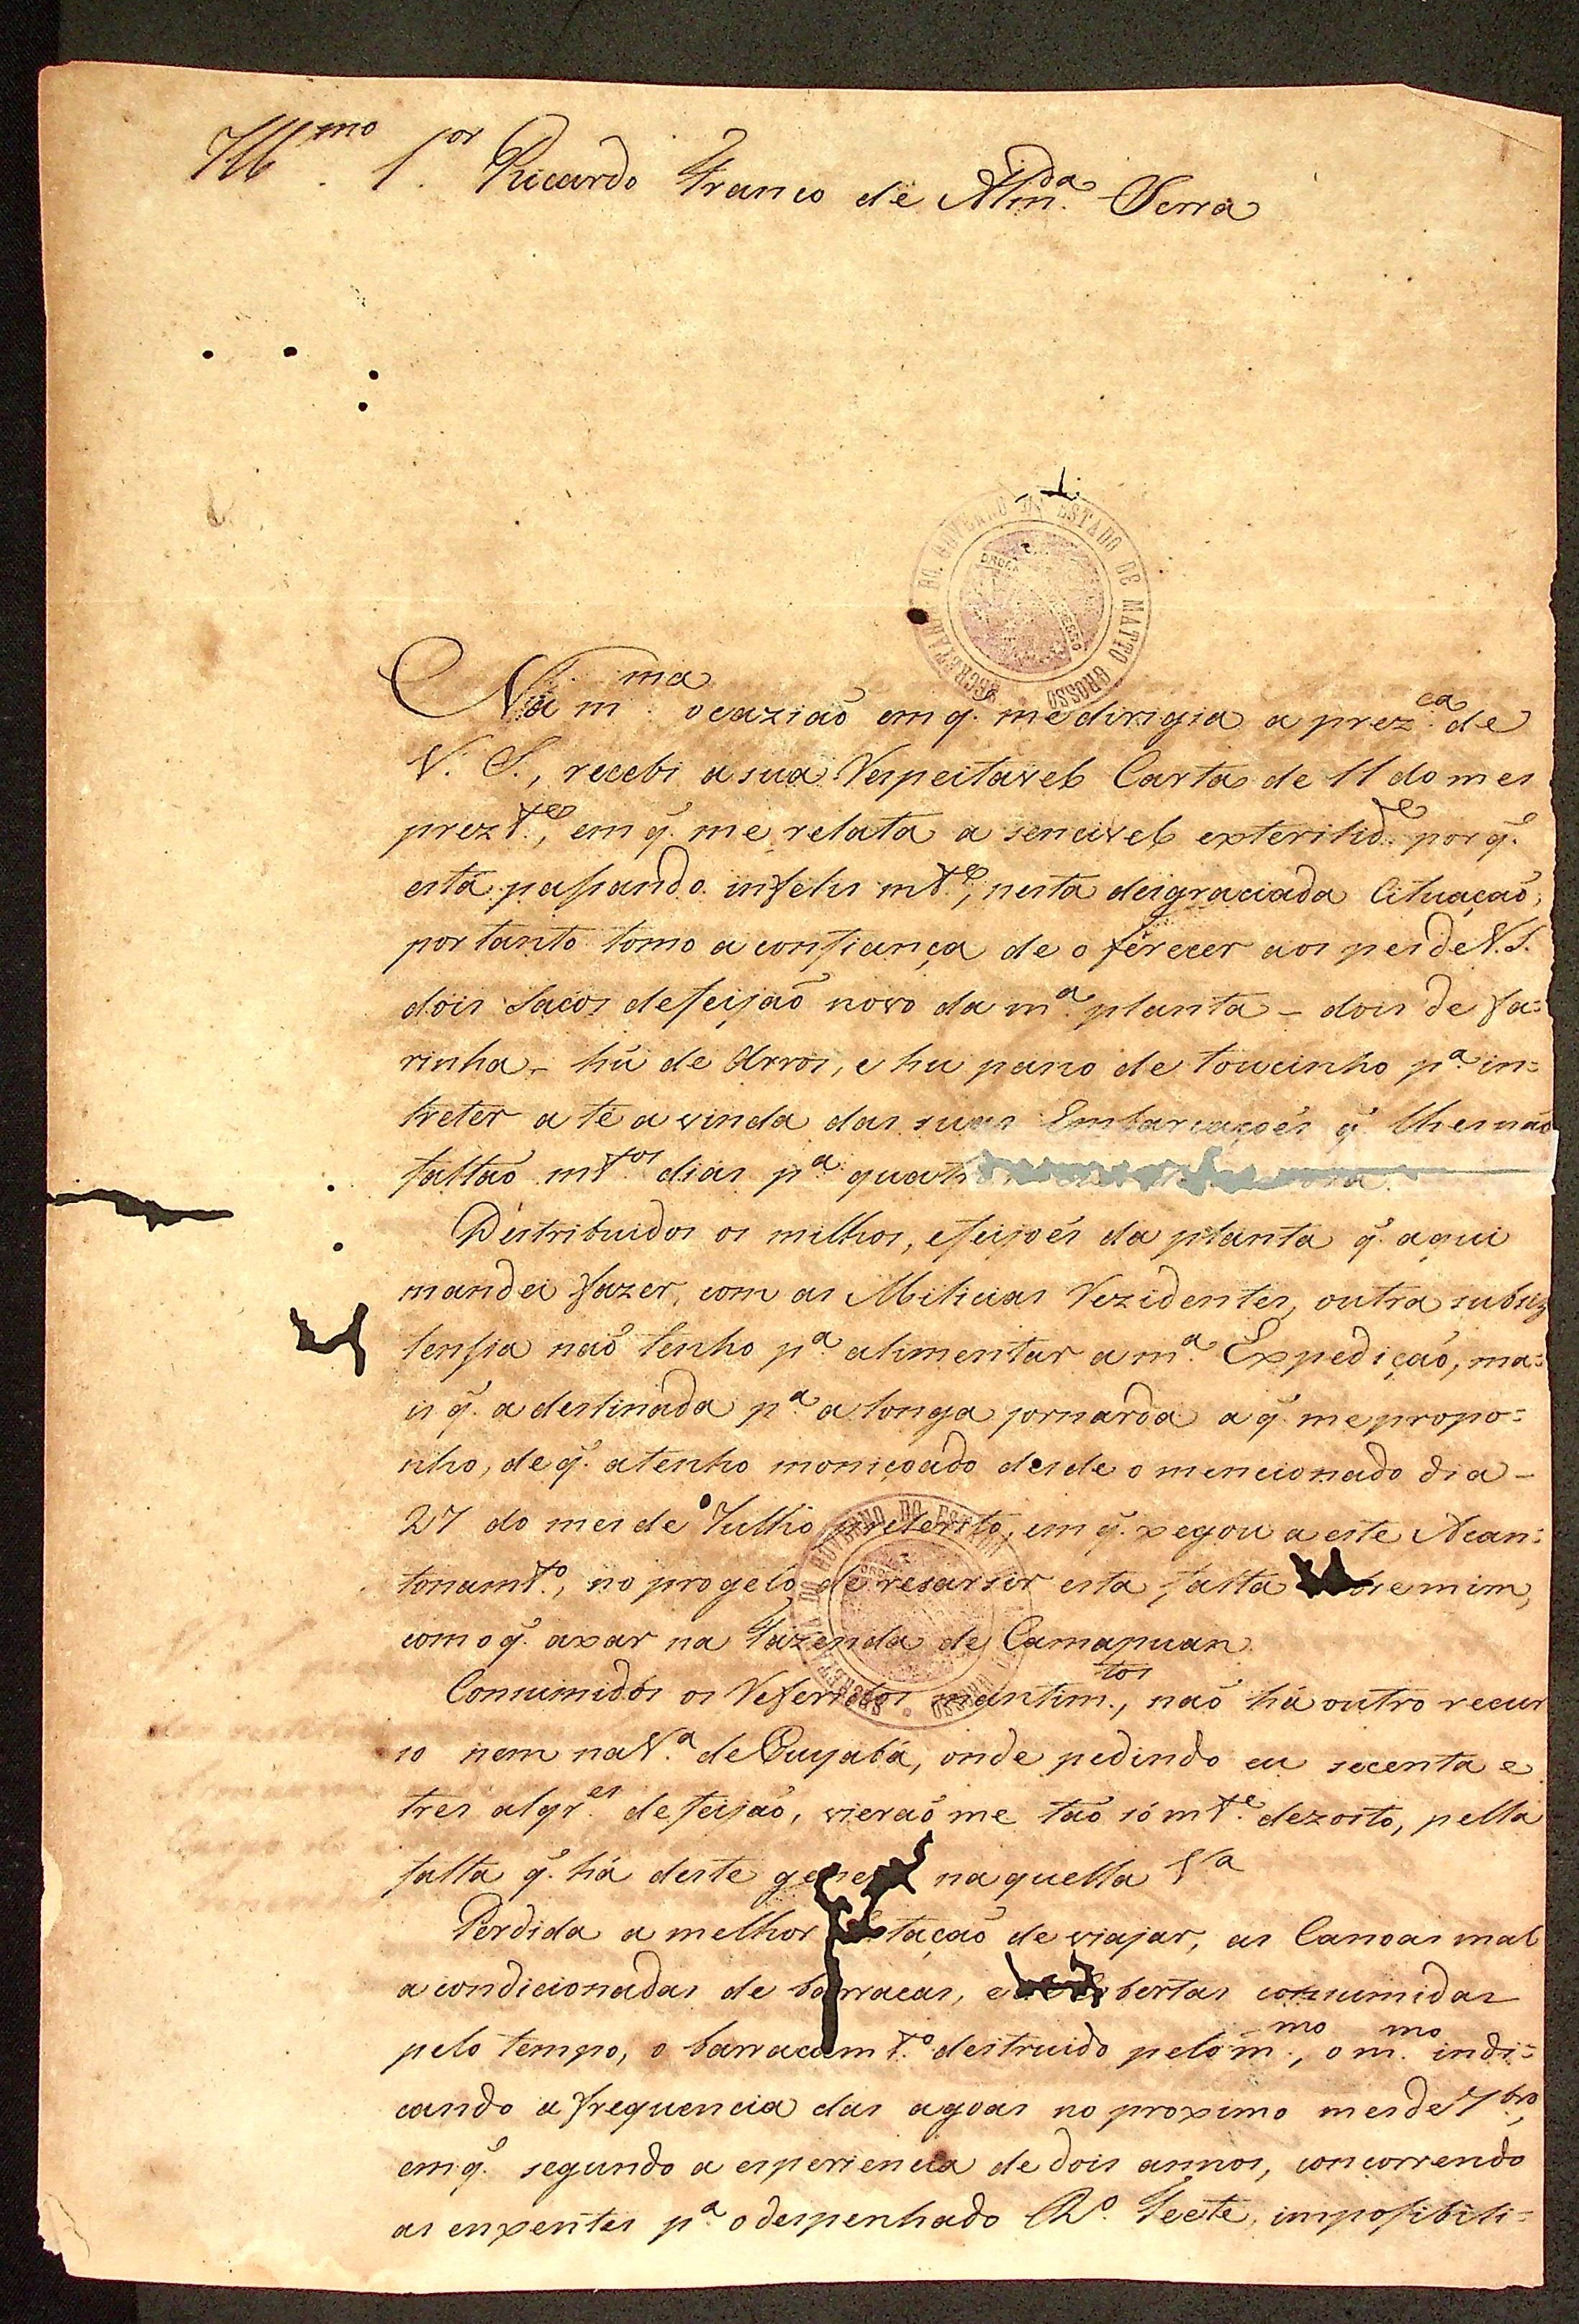 Ill.mo S.or Ricardo Franco de Alm.da Serra
SECRETARIA DO GOVERNO DO ESTADO DE MATTO GROSSO
Na m.ma ocaziaõ em q̃. me dirigia a prez.ca de
V. S., recebi a sua Respeitavel Carta de 11 do mes
prez.te, em q̃. me relata a sencivel exterilid.e por q̃.
está passando infelis m.te, nesta desgraciada Cituaçaõ;
portanto tomo a confiança de oferecer aos pes de V. S.
dois Sacos de feijaõ novo da m.a planta - dois de fa=
rinha - hũ de Arros, e hu pano de toucinho p.a in=
treter a te a vinda das suas Embarcaçoẽs q̃. lhes naõ
faltaõ m.tos dias p.a
Destribuidos os milhos, e feijoẽs da planta q̃. aqui
mandei fazer, com as Milicias Rezidentes, outra subsis
tensia naõ tenho p.a alimentar a m.a Expediçaõ, ma=
is q̃. a destinada p.a a longa jornarda a q̃. me propo=
nho, de q̃. a tenho moniçoado desde o mencionado dia -
27 do mes de Julho preterito, em q̃. xegou a este Acan=
tonam.to, no progeto de resarsir esta falta de mim,
com o q̃. axar na Fazenda de Camapuan.
Consumidos os Referidos mantim.tos, naõ há outro recur
so nem na V.a de Cuyabá, onde pedindo eu secenta e
tres alqr.es de feijaõ, vieraõ me taõ só m.te dezoito, pella
falta q̃. há deste genero naquella V.a
Perdida a melhor Estaçaõ de viajar, as Canoas mal
acondicionadas de barracas, e cobertas consumidas
pelo tempo, o barracam.to destruido pelo m.mo, o m.mo indi=
cando a frequencia das agoas no proximo mes de 7.bro,
em q̃. segundo a esperiencia de dois annos, concorrendo
as enxentes p.a o despenhado R.o Teeté, impossibili=